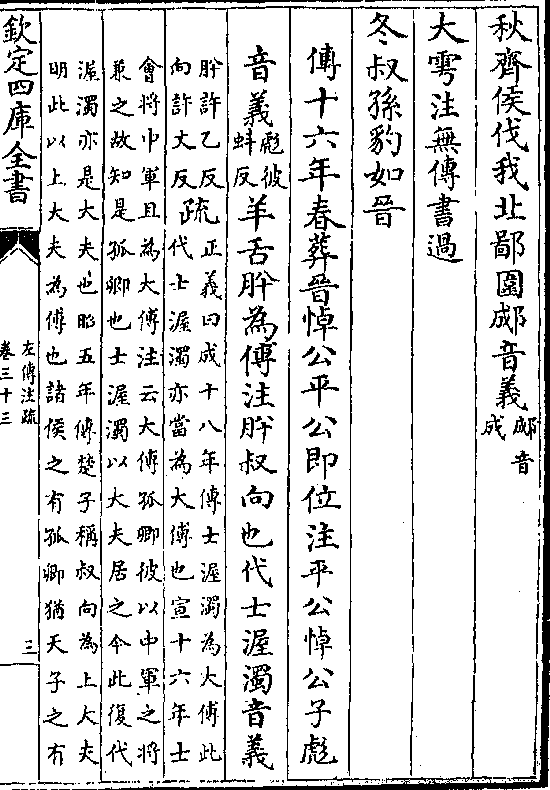 秋齊侯伐我北鄙圍郕音義郕音
成
大雩注無傳書過
冬叔孫豹如晉
傳十六年春葬晉悼公平公即位注平公悼公子彪
音義彪彼
蚪反羊舌肸為傅注肸叔向也代士渥濁音義
肸許乙反
向許丈反疏正義曰成十八年傳士渥濁為大傅此
代士渥濁亦當為大傅也宣十六年士
會將中軍且為大傅注云大傅孤卿彼以中軍之將
兼之故知是孤卿也士渥濁以大夫居之今此復代
渥濁亦是大夫也昭五年傳楚子稱叔向為上大夫
明此以上大夫為傅也諸侯之有孤卿猶天子之有
欽定四庫全書
左傳注疏
卷三十三
三